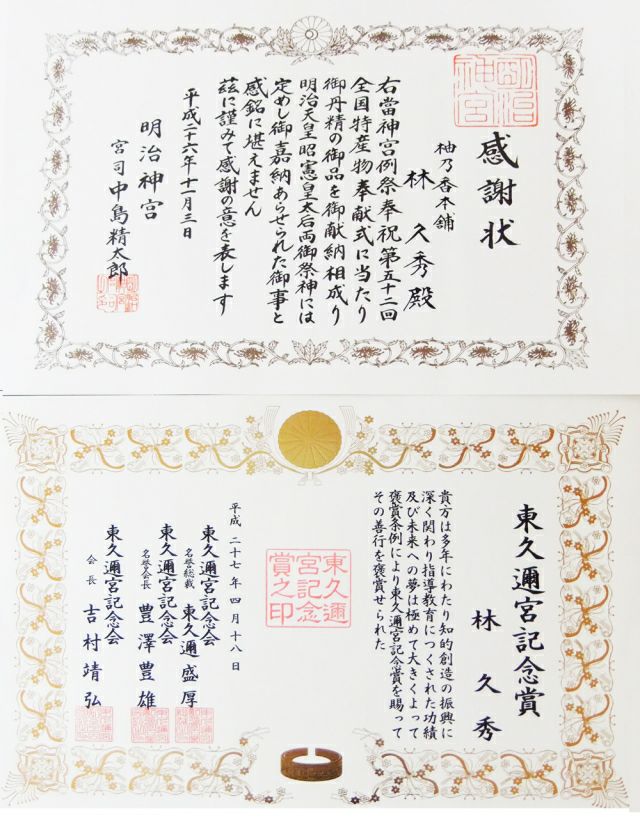 明治神宮
感謝状
柚乃香本舗
林 久秀殿
右當神宮例祭奉祝第五十二回
全国特産物奉献式に当たり
御丹精の御品を御献納相成り
明治天皇昭憲皇太后両御祭神には
定めし御嘉納あらせられた御事と
感銘に堪えません
茲に謹みて感謝の意を表します
平成二十六年十一月三日
明治神宮
宮司 中島精太郎
東久邇宮記念賞
林 久秀
貴方は多年にわたり知的創造の振興に
深く関わり指導教育につくされた功績
及び未来への夢は極めて大きくよって
褒賞条例により東久邇宮記念賞を賜って
その善行を褒賞せられた
東久邇
宮記念
賞之印
平成 二十七年 四月 十八日
東久邇宮記念会
名誉総裁 東久邇盛厚
東久邇宮記念会
名誉会長 豊澤豊雄
東久邇宮記念会
会長 吉村靖弘